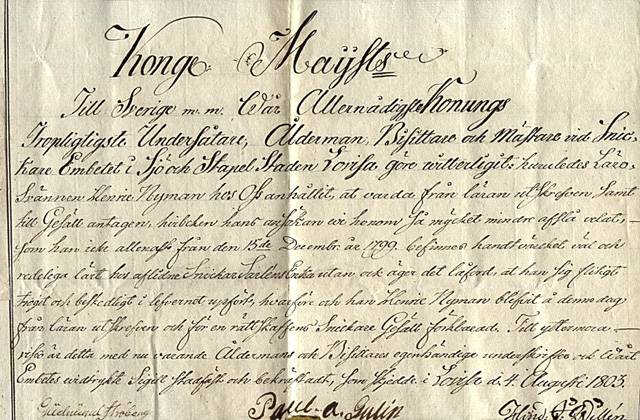 Konge Maysts
Till Sverige m. m. Wår Allernådigste Konungs
Tropligtigste Undersåtare, Ålderman, Bisittare och Mästare vid Snic-
kare Embetet i Sjö och Stapel Staden Lovisa, göre witterligit: huruledes Läro-
Svännen Henric Nyman hos Oss anhållit, at varda från läran utskrefven samt
till Gesäll antagen, hvilcken hans ansökan vi honom så mycket mindre afslå velat,
som han icke allenast från den 15de Decembr. år 1799. befinnes handtvercket väl och
redeliga lärt hos aflidne Snickar Enka utan ock äger det låford, at han sig fliteligt
troget och beskedligt i lefvernet upfört, hvarföre och han Henric Nyman blefvit å denne dag
från läran utskrefven och för en rättskaffens Snickare Gesäll förklarad. Till yttermera
visso är detta med nu varande Åldermans och Bisittares egenhändige underskrifter och
Embetes vidtryckte Sigill stadfäst och bekräftadt, som skedde i Lovisa d. 4 Augusti 1803.
Paul. a.